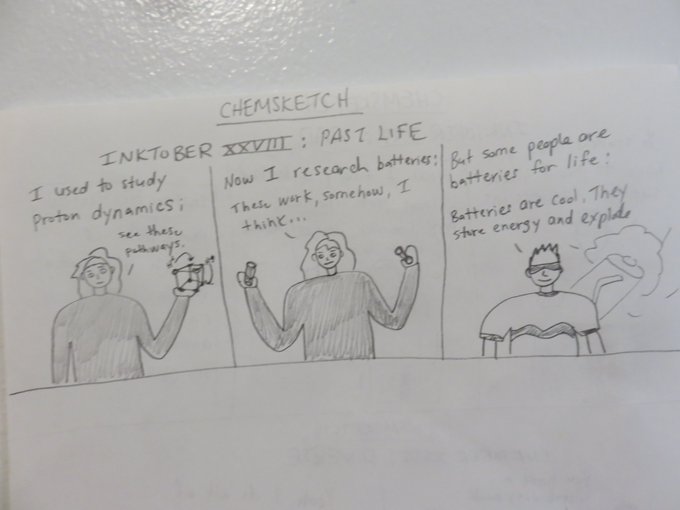 CHEMSKETCH
INKTOBER XXVIII : PAST LIFE
I used to study
proton dynamics;
see these
pathways.
Now I research batteries:
These work, somehow, I
think...
But some people are
batteries for life:
Batteries are cool. They
store energy and explode